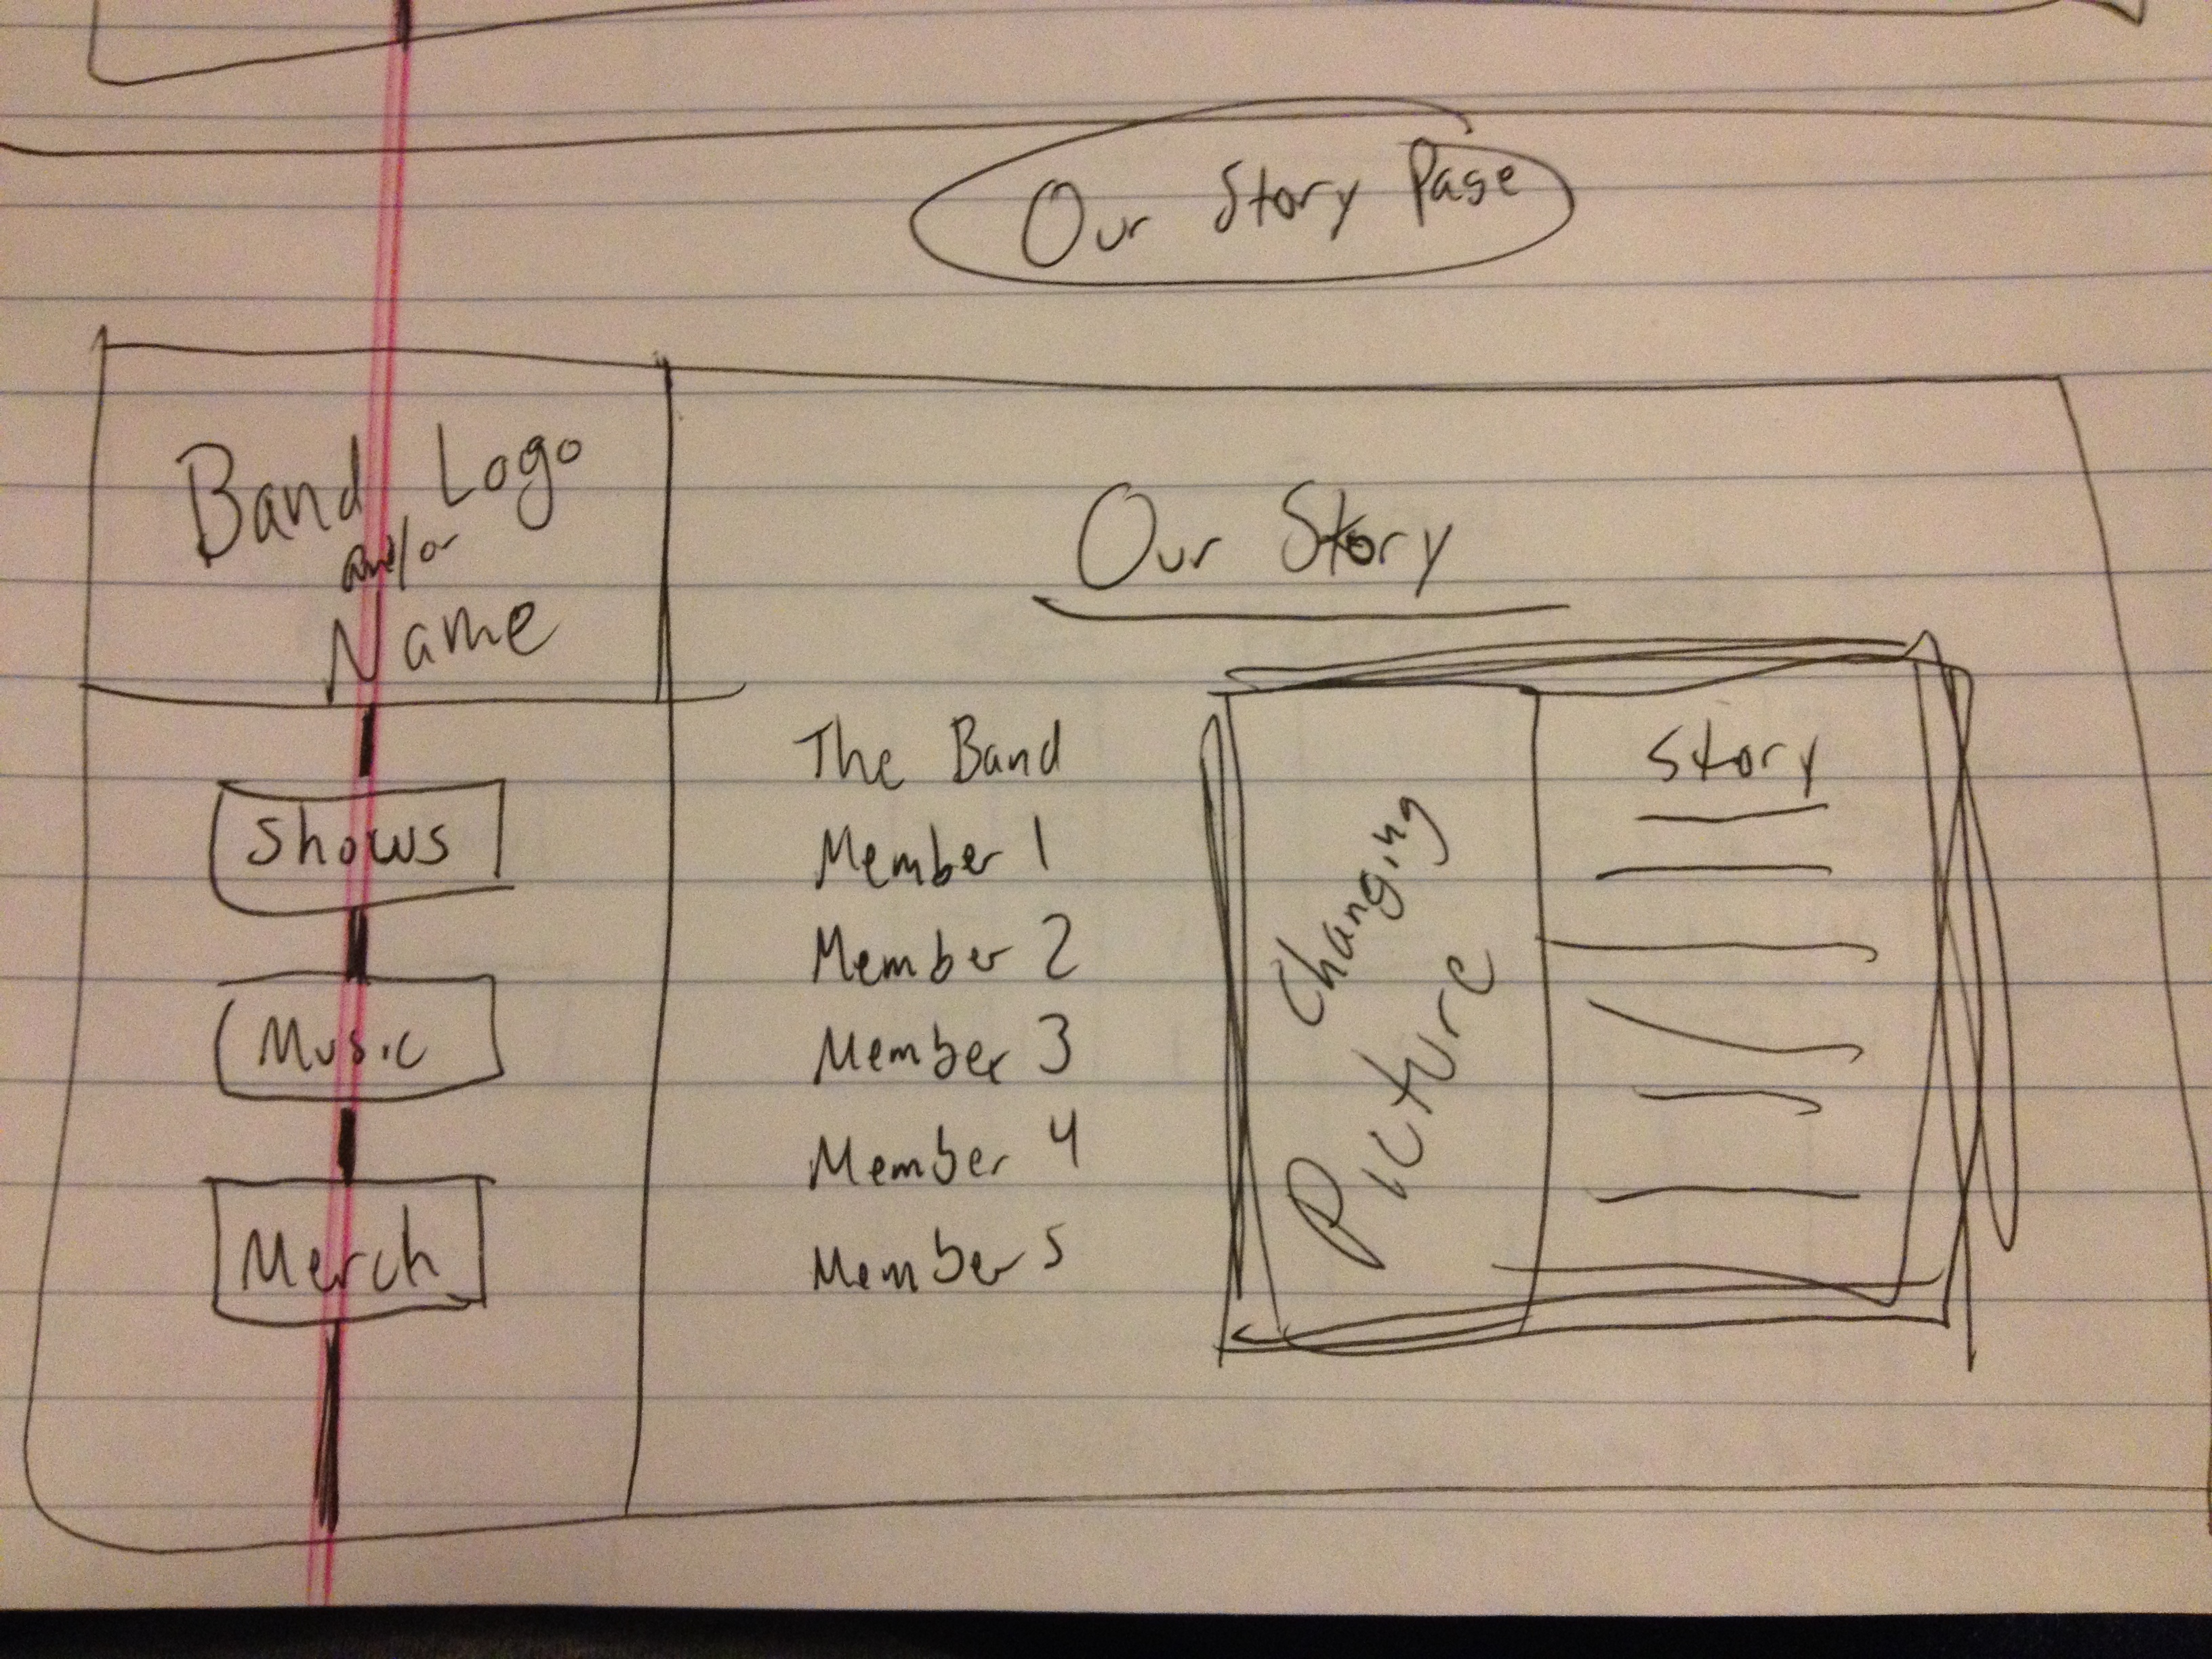 Our Story Page
Band Logo
and/or
Name
Shows
Music
Merch
Our Story
The Band
Member 1
Member 2
Member 3
Member 4
Member 5
Changing
Picture
Story